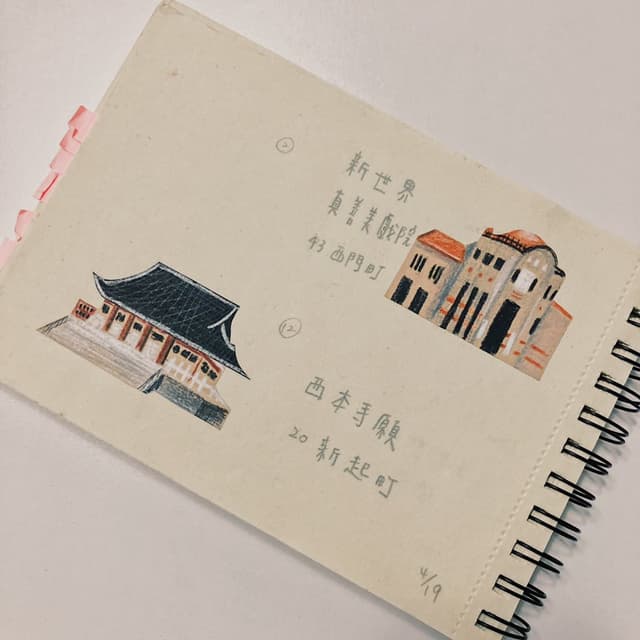 ②
新世界
真善美戲院
43 西門町
⑫
西本手願
20 新起町
4/19